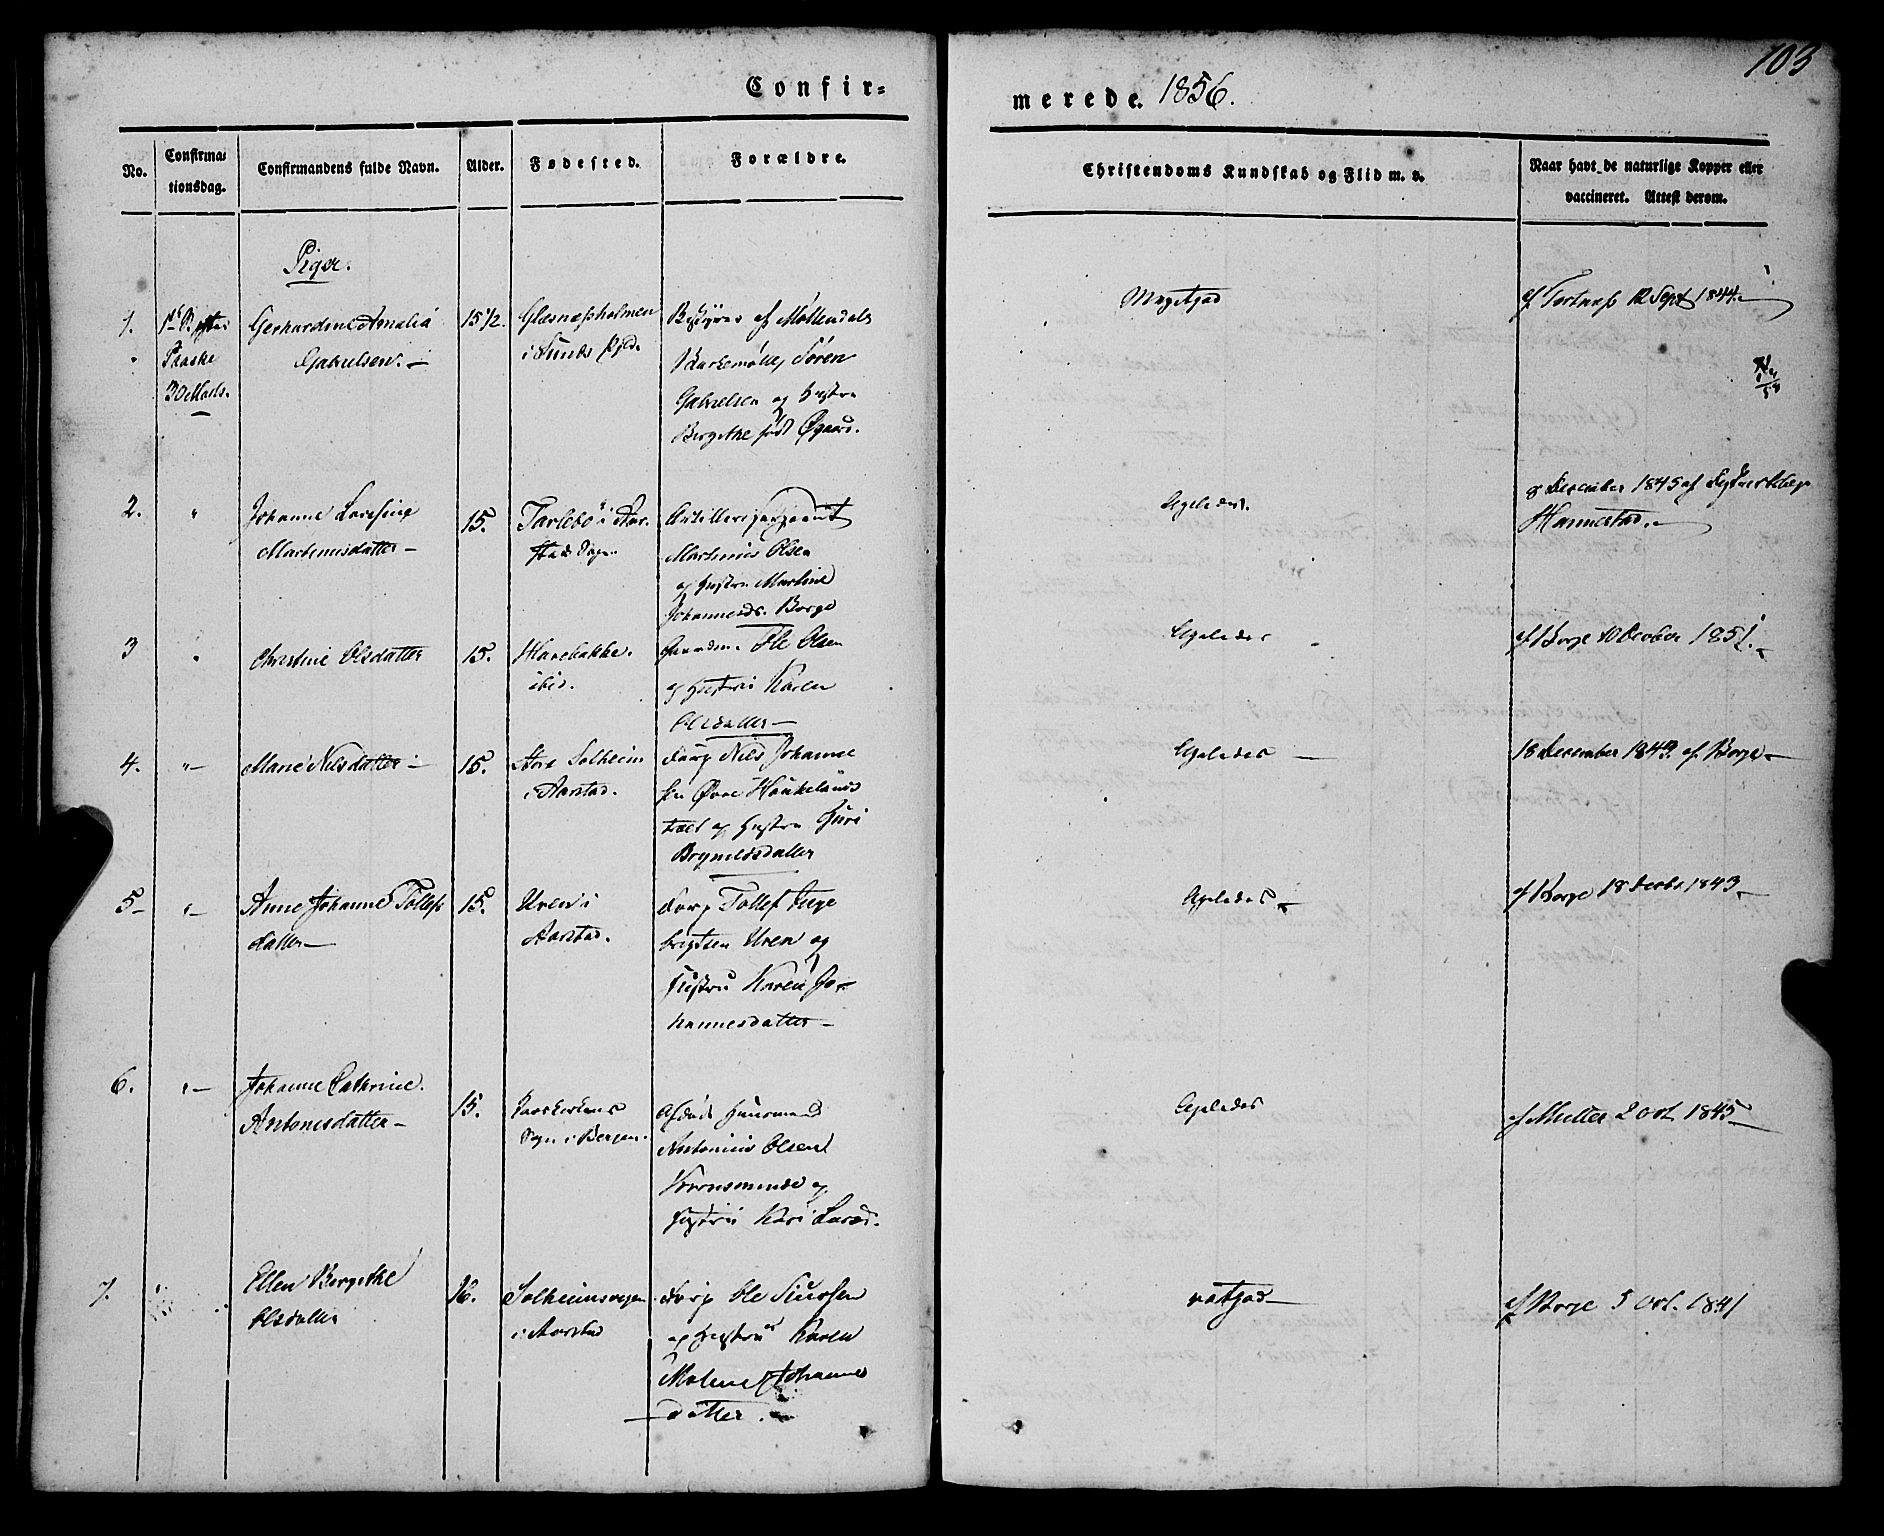 103
Confir-
merede. 1856.
No.
Confirma-
tionsdag.
Confirmandens fulde Navn.
Alder.
Fødested.
Forældre.
Christendoms Kundskab og Flid m. v.
Naar havt de naturlige Kopper eller
vaccineret. Attest derom.
Piger.
1.
Paaske
30 Marts.
Gerhardine Amalia
Gabrielsen. —
15 1/2.
Glæsnæsholmen
i Sunds Pgld.
Bestyrer af Møllendals
Barkemølle Søren
Gabrielsen og Hustru
Bergethe født Øgaard.
Megetgod
af 12 Sept 1844. —
2.
"
Johanne
Martinusdatter —
15.
Tarlebø i Aar-
stad Sogn.
Artillerisergeant
Martinus Olsen
og Hustru Martine
Johannesd. Borge
Ligeledes.
8 December 1845 af
Hannestad. —
3
"
Christine Olsdatter
15.
Harebakke
ibid.
Ole Olsen
og Hustru Karen
Olsdatter —
Ligeledes
af Borge 10 October 1851. —
4.
"—
Marie Nilsdatter —
15.
Store Solheim
i Aarstad.
Nils Johanne
sen Øvre Haukelands
og Hustru Guri
Brynildsdatter
Ligeledes —
18 December 1843. af Borge —
5 —
"—
Anne Johanne Tollefs
datter —
15.
Uren i
Aarstad.
Tollef Inge
brigtsen Uren og
Hustru Karen Jo-
hannesdatter —
Ligeledes —
af Borge 18 Decbr 1843 —
6.
"—
Johanne Cathrine
Antonisdatter —
15.
Korskirkens
Sogn i Bergen.
Afdøde Huusmand
Antonius Olsen
og
Hustru Kari Larsd.
Ligeledes
af 2 Oct 1845 —
7.
"
Ellen Bergethe
Olsdatter
16.
Solheimsvigen
i Aarstad
Ole Siursen
og Hustru Karen
Malene Johannes
datter. —
godt —
af Borge 5 Oct. 1841